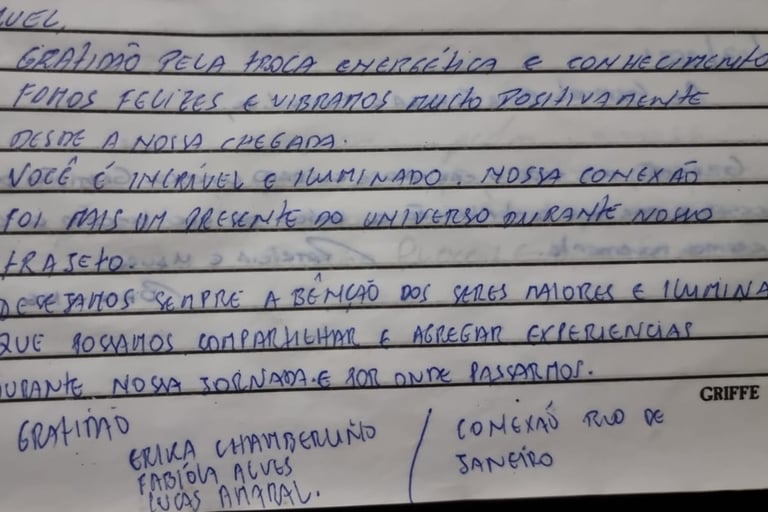 UEL,
GRATIDÃO PELA TROCA ENERGÉTICA E CONHECIMENTO
FOMOS FELIZES E VIBRAMOS MUITO POSITIVAMENTE
DESDE A NOSSA CHEGADA.
VOCÊ É INCRÍVEL E ILUMINADO. NOSSA CONEXÃO
FOI MAIS UM PRESENTE DO UNIVERSO DURANTE NOSSO
TRAJETO.
DESEJAMOS SEMPRE A BÊNÇÃO DOS SERES MAIORES E ILUMINA
QUE POSSAMOS COMPARTILHAR E AGREGAR EXPERIENCIAS
DURANTE NOSSA JORNADA E POR ONDE PASSARMOS.
GRIFFE
GRATIDÃO
ERIKA CHAMBERLINO
FABÍOLA ALVES
LUCAS AMARAL.
/ CONEXÃO RIO DE
JANEIRO